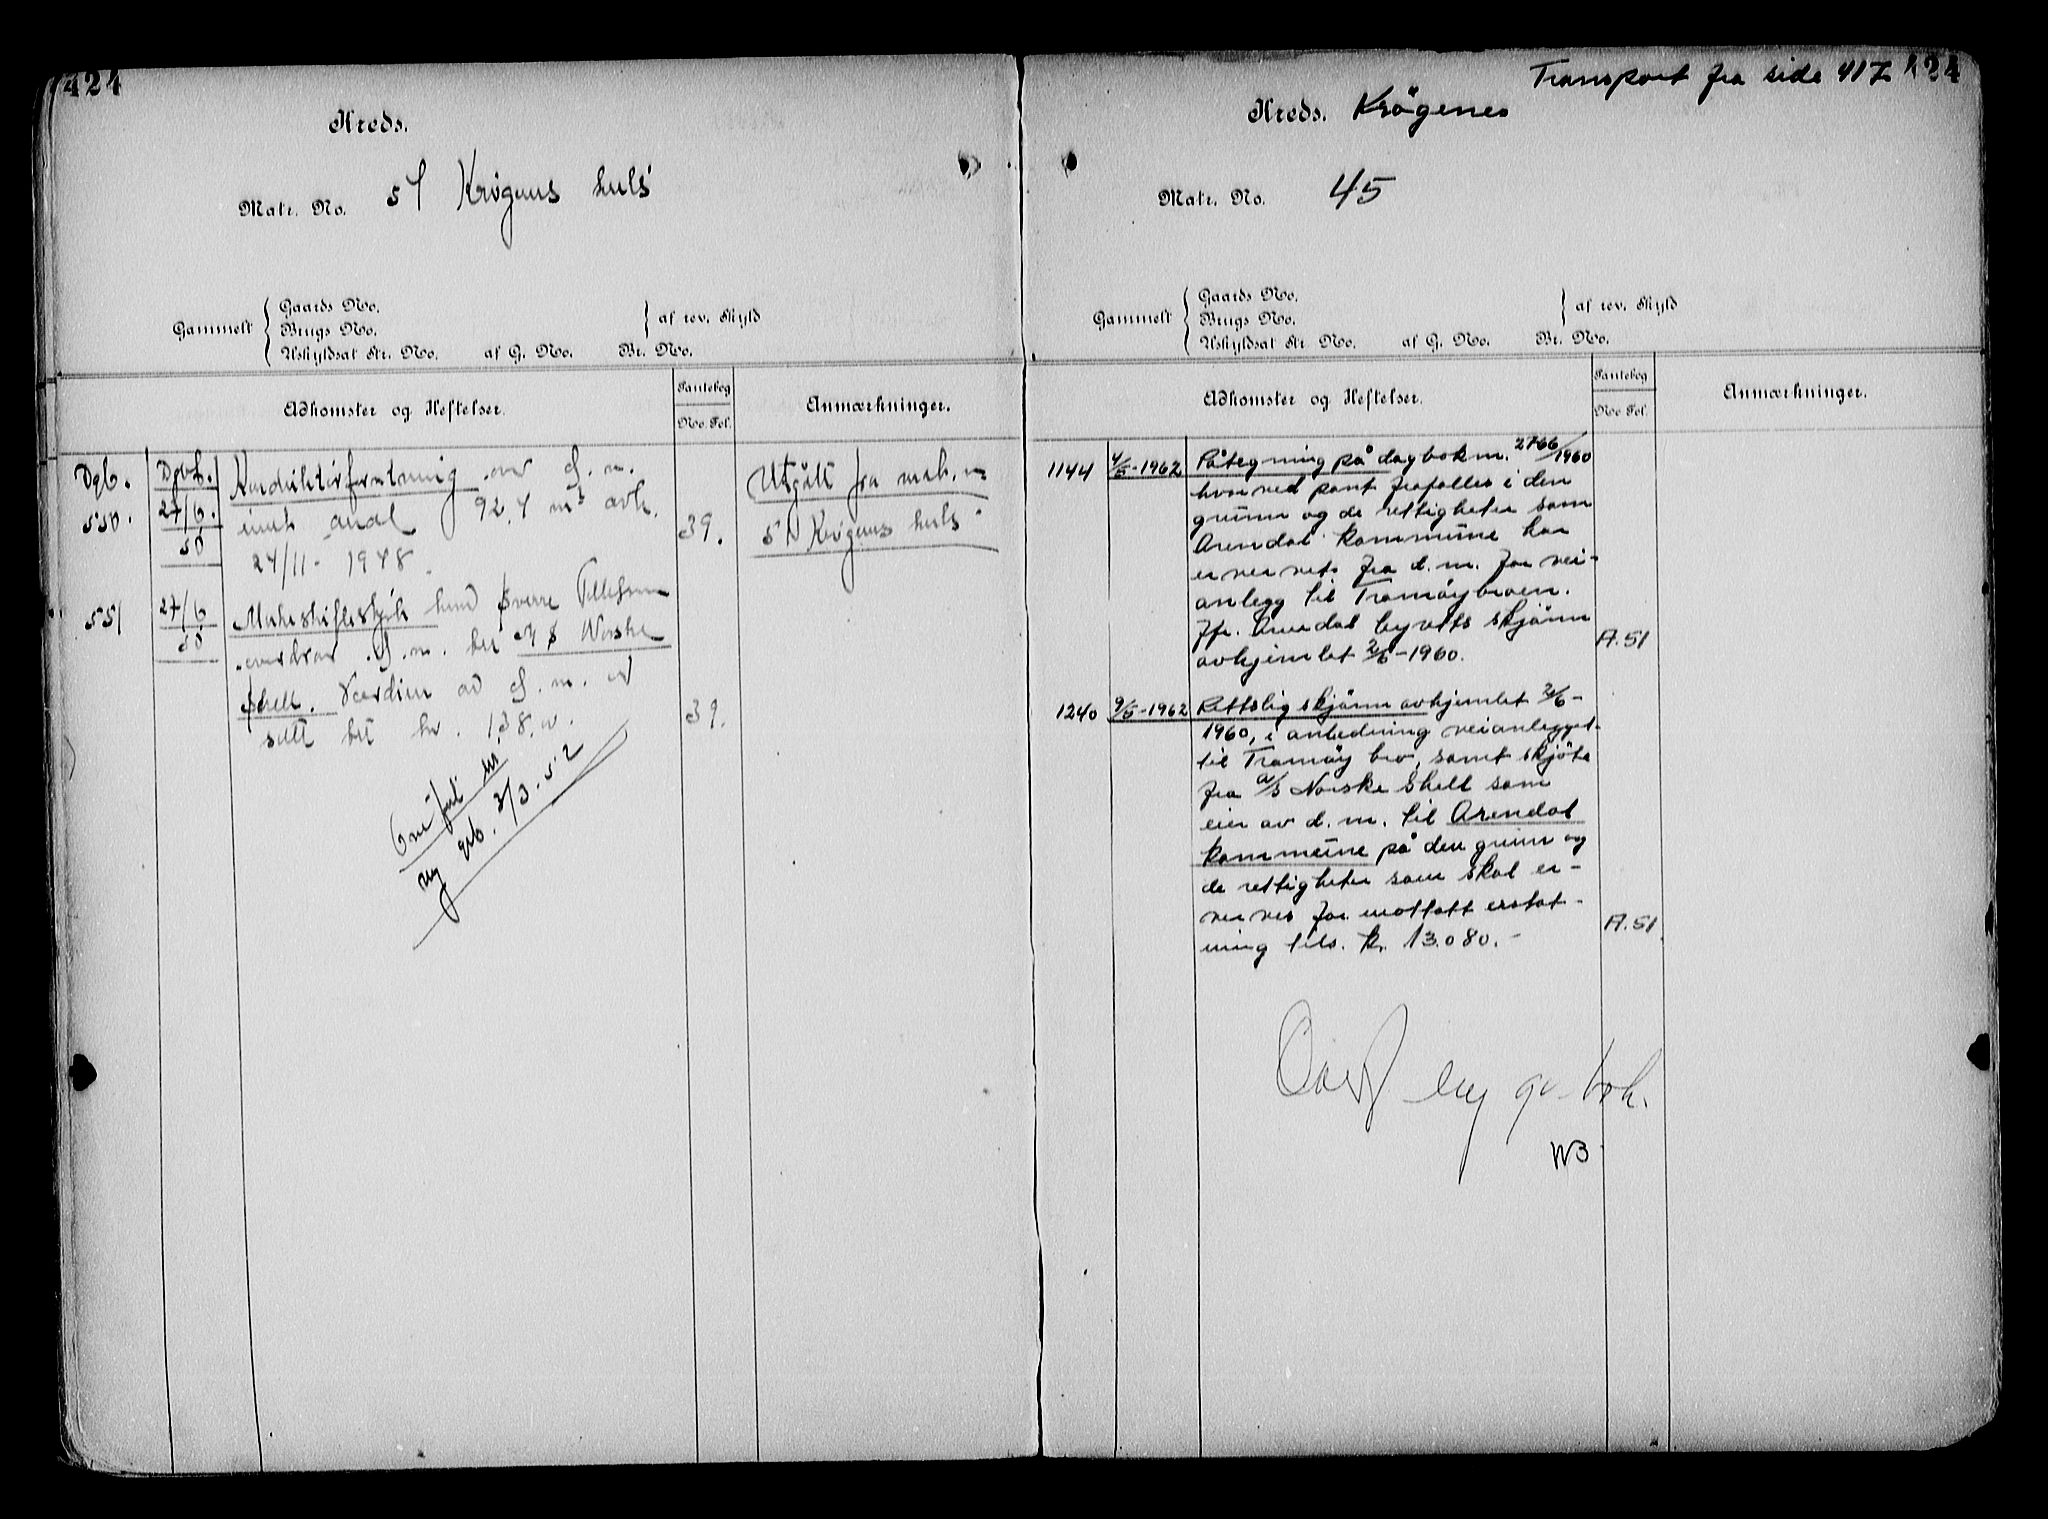 424
Kreds.
Matr. No. 5 Krøgenes
Gammelt
Gaards No.
Brugs No.
Uskyldsat Str. No. af G. No. Br. No.
af rev. Skyld
Adkomster og Heftelser.
Pantebog
No. Fol.
Anmærkninger.
Dgb. Dgbf.
550. 27/6. 50
Konduktørforretning over d. m.
areal 92,4 m² avh.
24/11 - 1948.
39.
Utgått fra matr. nr
5 Krøgenes
551 27/6 50
Makeskifteskjøte hvorved Sverre Tellefsen
overdrar d. m. til A/S Norske
Shell. Verdien av d. m. er
satt til kr. 138,00.
39.
Overført til
ny grb. 3/3.52
Transport fra side 417 424
Kreds. Krögenes
Matr. No. 45
Gammelt
Gaards No.
Brugs No.
Uskyldsat Str. No. af G. No. Br. No.
af rev. Skyld
Adkomster og Heftelser.
Pantebog
No. Fol.
Anmærkninger.
1144 4/5-1962 Påtegning på dagboknr. 2766/1960
hvorved pant frafalles i den
grunn og de rettigheter som
Arendal kommune har
ervervet fra d. m. for vei-
anlegg til Tromöybroen.
Jfr. Arendal byretts skjönn
avhjemlet 2/6-1960. A. 51
1240 9/5-1962 Rettslig skjönn avhjemlet 2/6-
1960, i anledning veianlegget
til Tromöy bro, samt skjöte
fra A/S Norske Shell som
eier av d. m. til Arendal
kommune på den grunn og
de rettigheter som skal er-
verves for mottatt erstat-
ning tils. kr. 13.080.- A. 51
Overf ny gr. bok.
WB